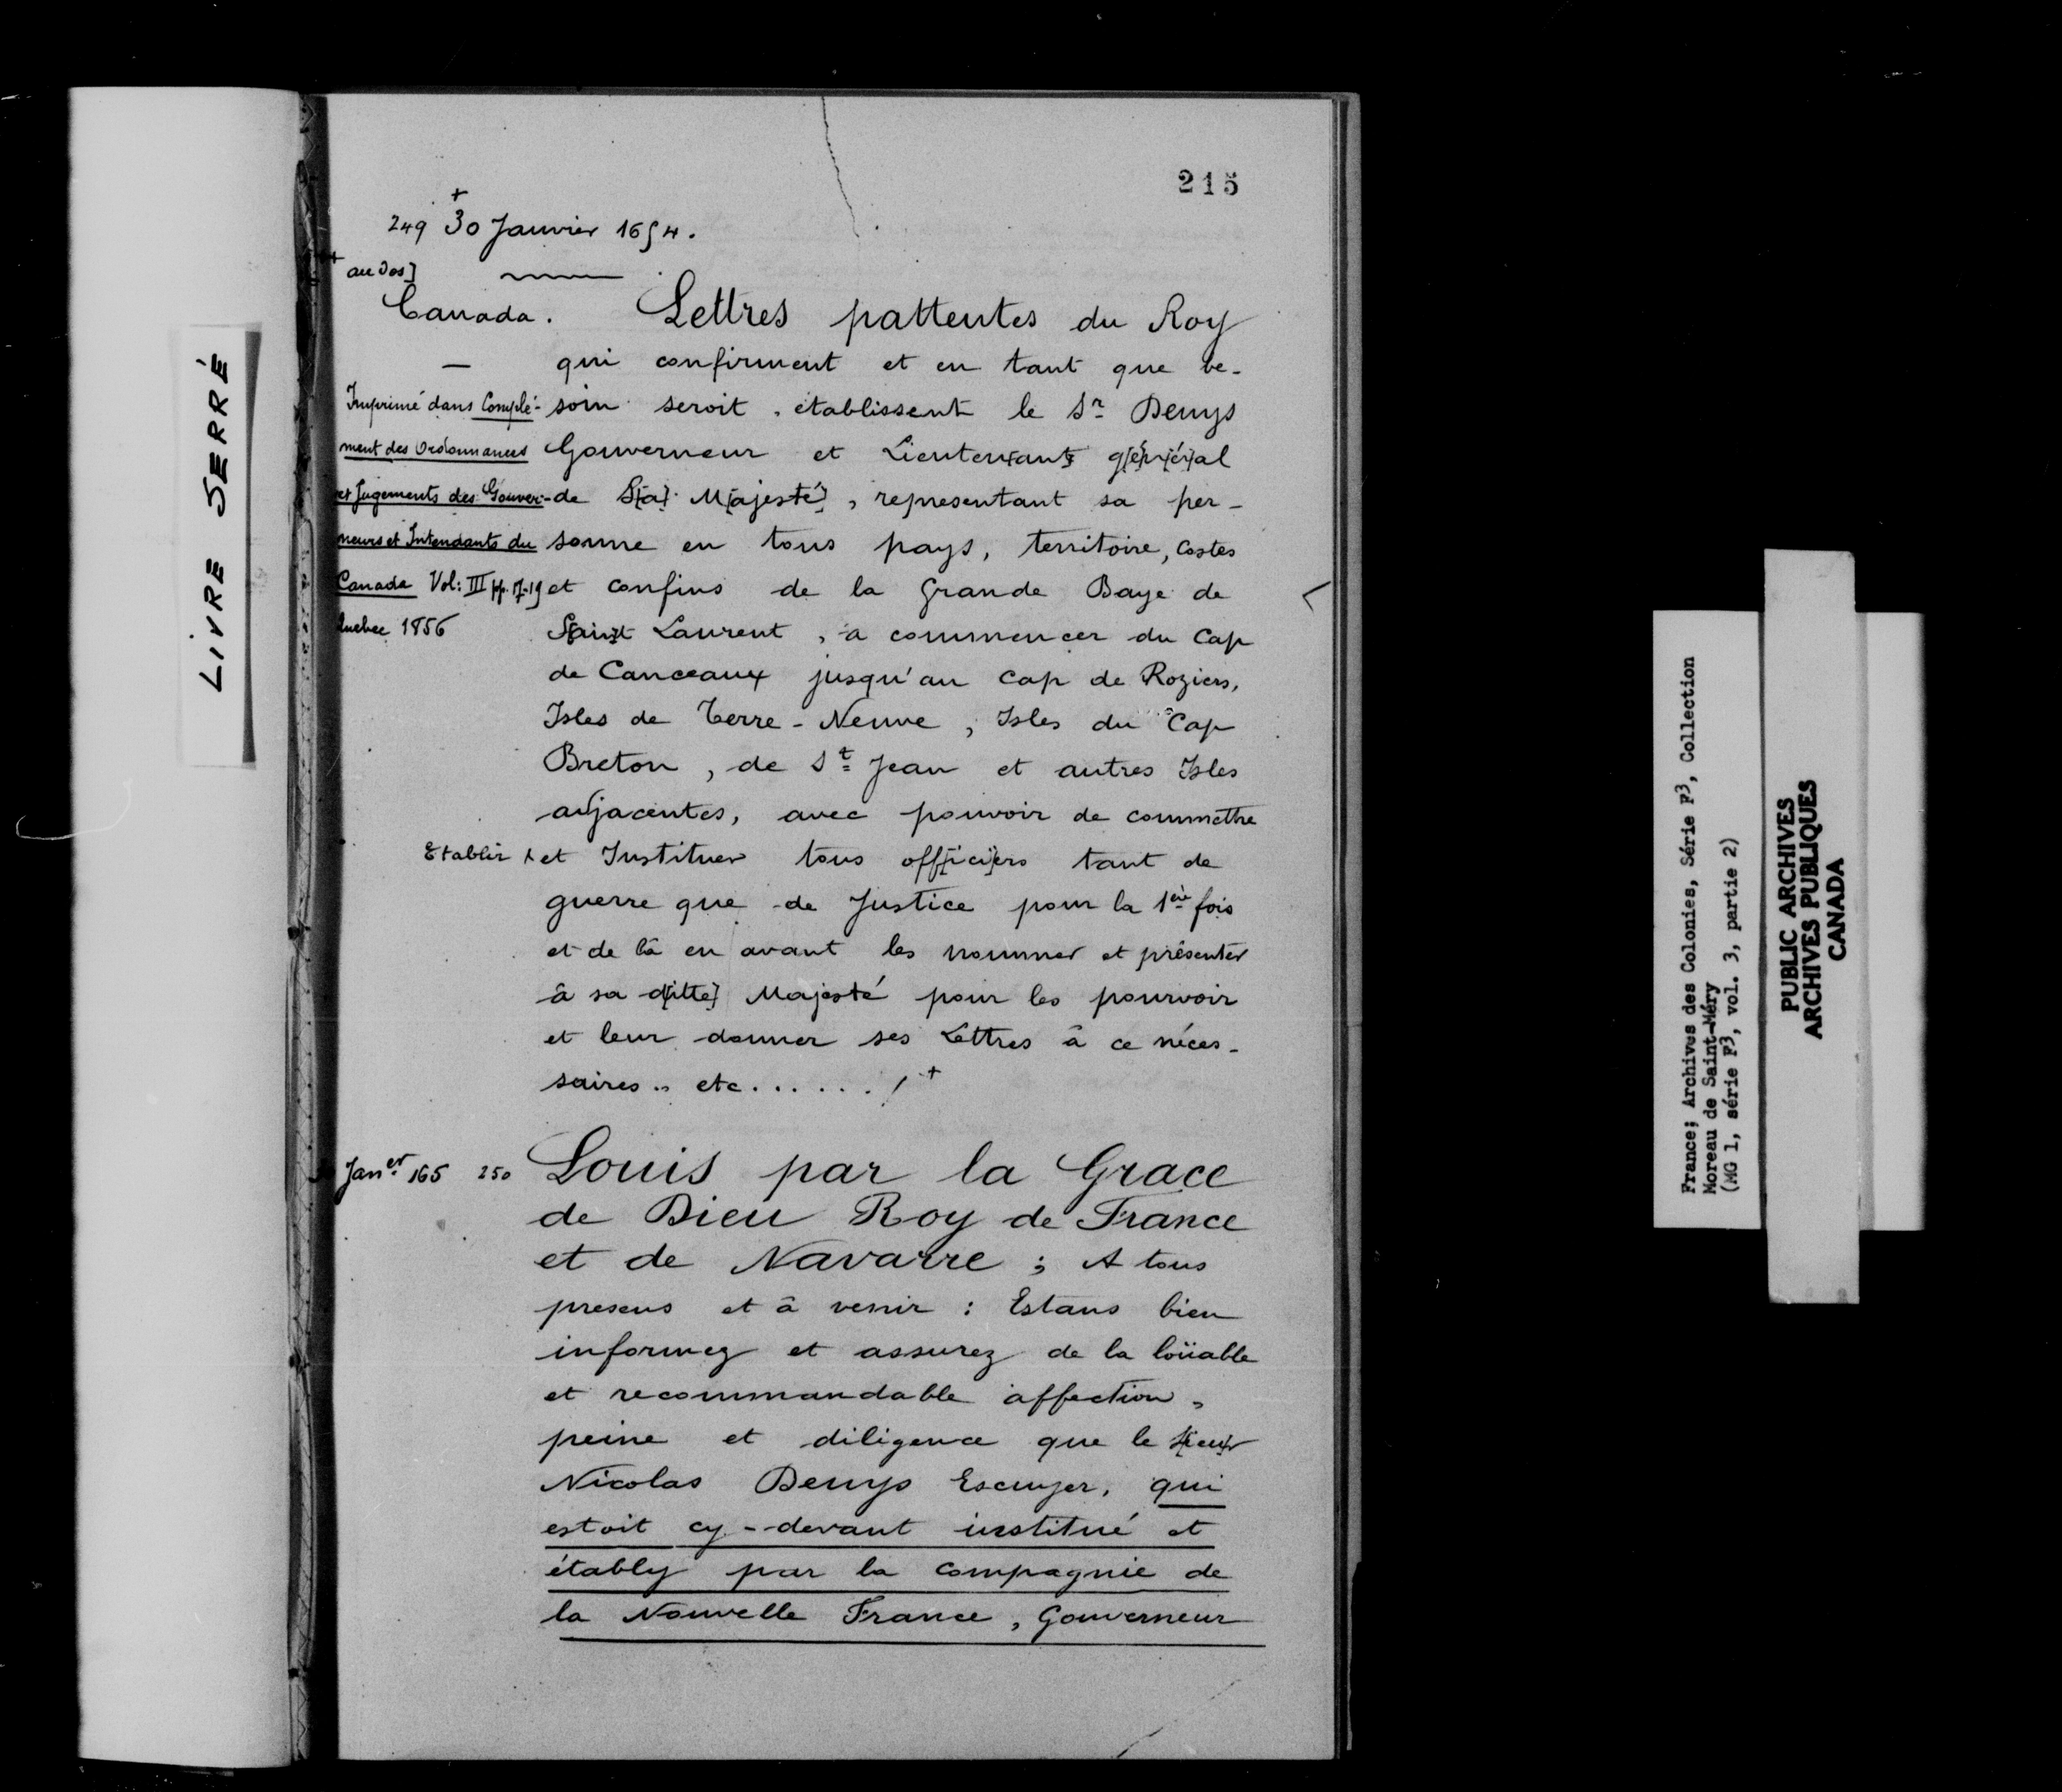 LIVRE SERRÉ
215
+
249 30 Janvier 1654.
+ au dos]
Canada. Lettres pattentes du Roy
qui confirment et en tant que be-
soin seroit, établissent le Sr Denys
Gouverneur et Lieuten[ant] g[é]n[ér]al
de S[a] M[ajesté], representant sa per-
sonne en tous pays, territoire, Costes
et confins de la Grande Baye de
S[ain]t Laurent, a commencer du Cap
de Canceaux jusqu'au Cap de Roziers,
Isles de Terre-Neuve, Isles du Cap
Breton, de St Jean et autres Isles
adjacentes, avec pouvoir de commettre
Etablir + et Instituer tous off[ici]ers tant de
guerre que de Justice pour la 1ère fois
et de là en avant les nommer et présenter
à sa d[itte] Majesté pour les pourvoir
et leur donner ses Lettres à ce néces-
saires .. etc...... /+
Imprimé dans Complé-
ment des Ordonnances
et Jugements des Gouver-
neurs et Intendants du
Canada Vol: III pp. 17-19
Quebec 1856
Janer 165 250 Louis par la Grace
de Dieu Roy de France
et de Navarre ; A tous
presens et à venir : Estans bien
informez et assurez de la loüable
et recommandable affection,
peine et diligence que le S[ieu]r
Nicolas Denys Escuyer, qui
estoit cy-devant institué et
étably par la Compagnie de
la Nouvelle France, Gouverneur
France; Archives des Colonies, Série F3, Collection
Moreau de Saint-Méry
(MG 1, série F3, vol. 3, partie 2)
PUBLIC ARCHIVES
ARCHIVES PUBLIQUES
CANADA